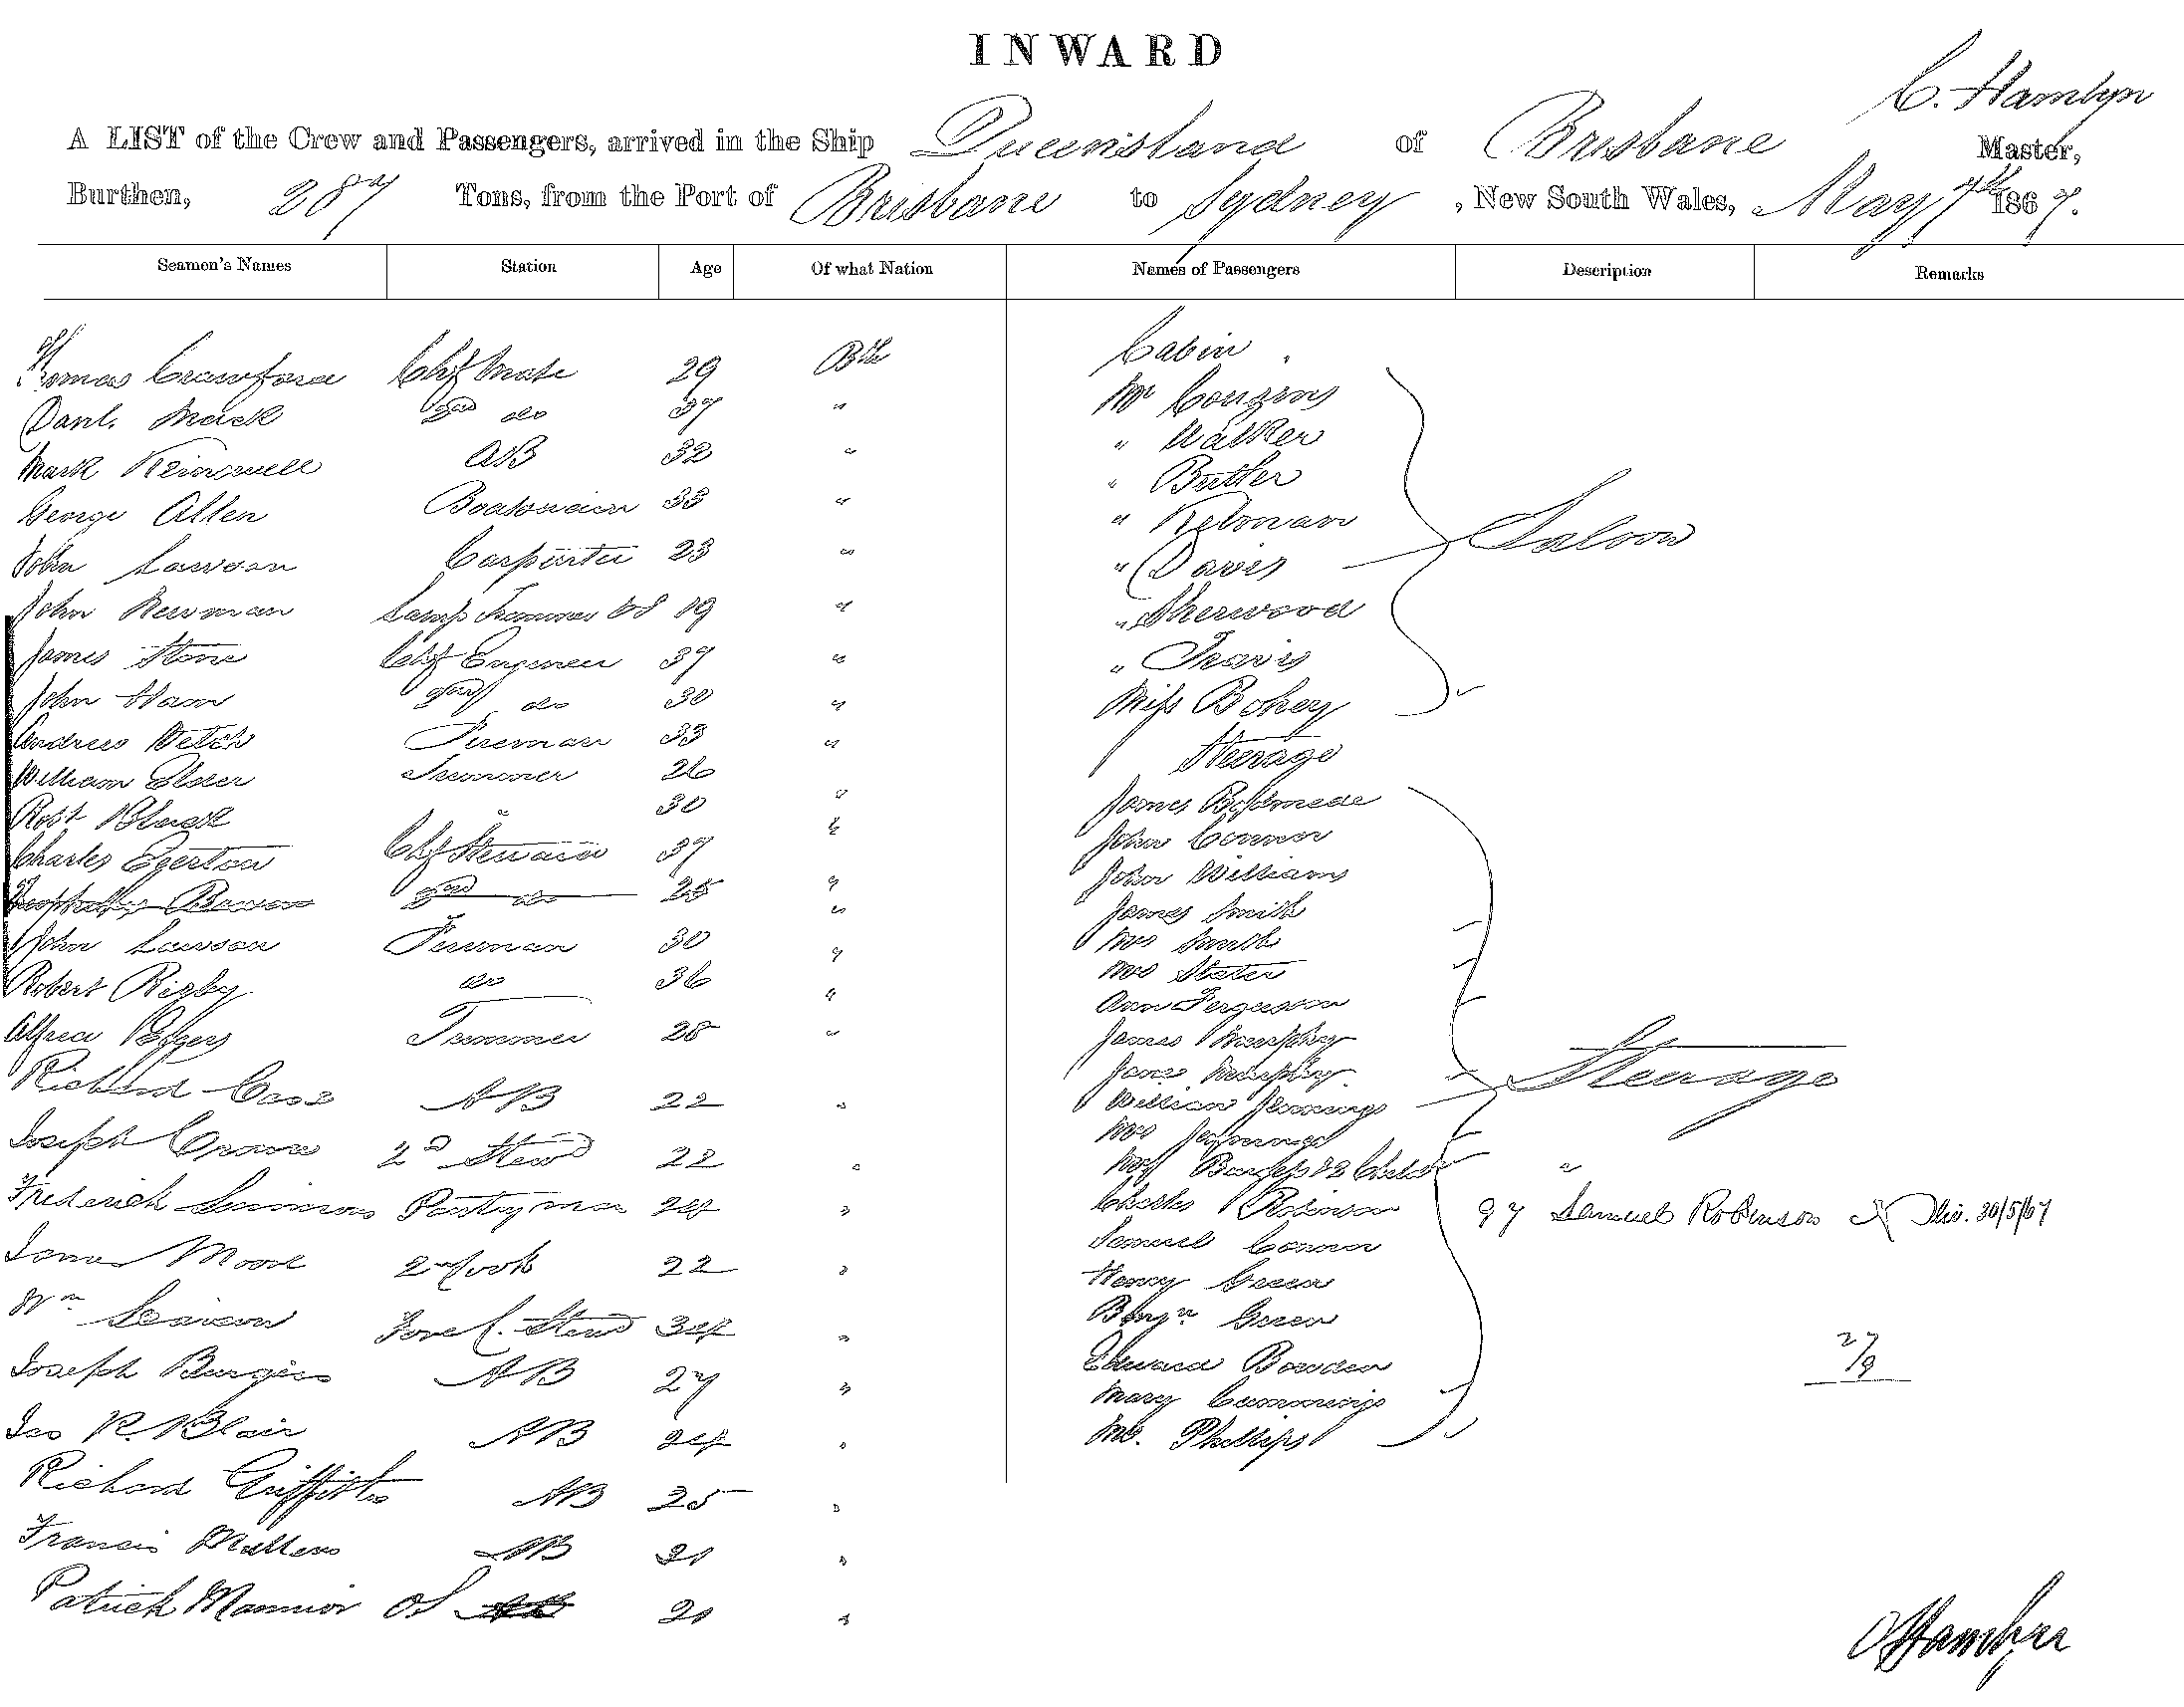 INWARD
C. Hamlyn
A LIST of the Crew and Passengers, arrived in the Ship Queensland of Brisbane Master,
Burthen, 287 Tons, from the Port of Brisbane to Sydney, New South Wales, May 7th 1867.
Seamen's Names Station Age Of what Nation Names of Passengers Description Remarks
Thomas Crawford Chf Mate 29 Bth
Danl. Mack 2nd do 37 "
Mark 32 AB "
George Allen Boatswain 33 "
John Lawson Carpenter 23 "
John Newman Lamp Trimmer 19 "
James Stone Chf Engineer 37 "
John Ham 2nd do 30 "
Andrew Fireman 33 "
William Trimmer 26
Robt Black " 30 "
Charles Egerton Chf Steward 37 "
2nd do 25 "
John Lawson Fireman 30 "
Robert Rigby do 36 "
Alfred Trimmer 28 "
Richard Case AB 22 "
Joseph 2d Stewd 22 "
Frederick Simmons Pantry man 24 "
James Moore 2nd Cook 22 "
Wm Fore C. Stewd 34 "
Joseph Burgess AB 27 "
Jas R. Blair AB 24 "
Richard Griffiths AB 25 "
Francis AB 21 "
Patrick Mannior OS 21 "
Cabin
Mr Couzens
" Walker
" Butler
" Kelman
" Davis
" Sherwood
" Travis
Miss Bohey
Saloon
Steerage
James
John Connor
John Williams
James Smith
Mrs Smith
Mrs Slater
Ann Ferguson
James Murphy
Jane Murphy
William Jennings
Mrs
Mrs Burgess & 2 Child
Charles Robinson 97 Samuel Robinson Div. 30/5/67
Samuel Connor
Henry Green
Benjn Green
Edward Bowden
Mary Cummings
Mr. Phillips
Steerage
27/9
C Hamlyn